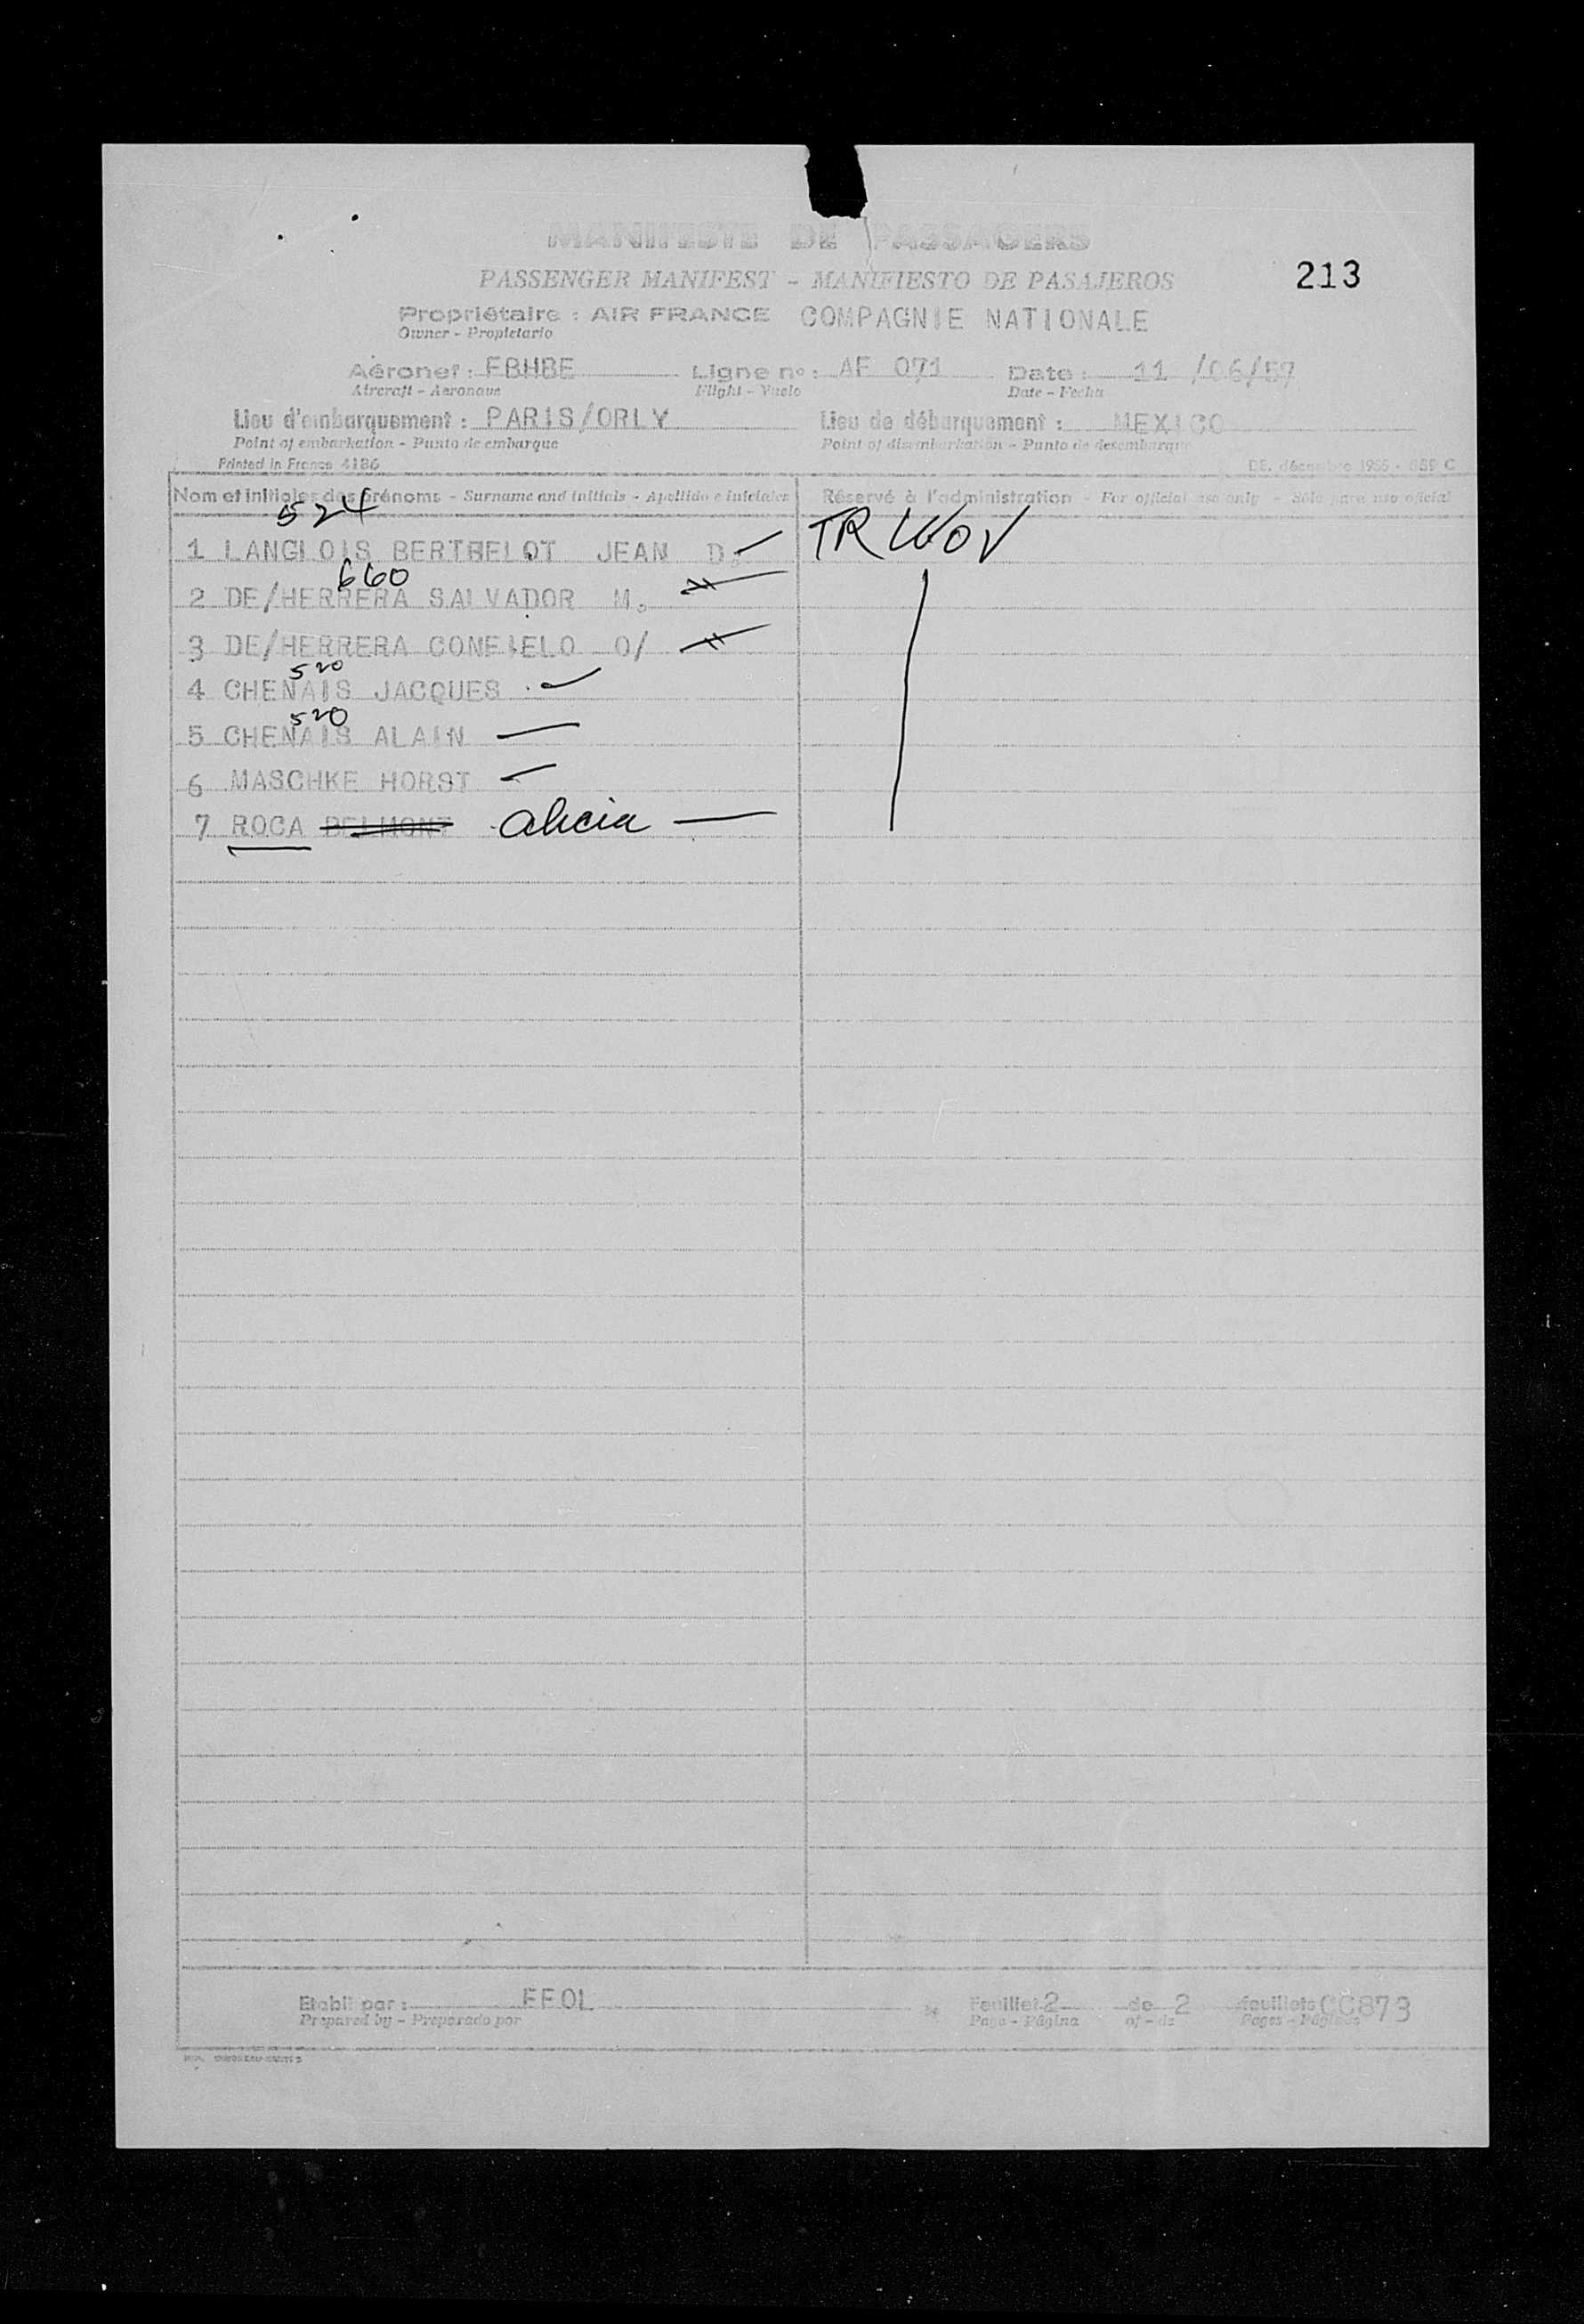 MANIFESTE DE PASSAGERS
PASSENGER MANIFEST - MANIFIESTO DE PASAJEROS
213
Propriétaire : AIR FRANCE COMPAGNIE NATIONALE
Owner - Propietario
Aéronef : FBHBE Ligne n° : AF 071 Date : 11 /06/57
Aircraft - Aeronave Flight - Vuelo Date - Fecha
Lieu d'embarquement : PARIS/ORLY Lieu de débarquement : MEXICO
Point of embarkation - Punto de embarque Point of disembarkation - Punto de desembarque
Printed in France 4186 DE. décembre 1955 - 859 C
Nom et initiales des prénoms - Surname and initials - Apellido e iniciales Réservé à l'administration - For official use only - Sólo para uso oficial
524
1 LANGLOIS BERTHELOT JEAN D. TR WOV
660
2 DE/HERRERA SALVADOR M.
3 DE/HERRERA CONEIELO O/
520
4 CHENAIS JACQUES
520
5 CHENAIS ALAIN
6 MASCHKE HORST
7 ROCA BELMONT Alicia
Etabli par : FFOL Feuillet 2 de 2 feuillets CC873
Prepared by - Preparado por Page - Página of - de Pages - Páginas